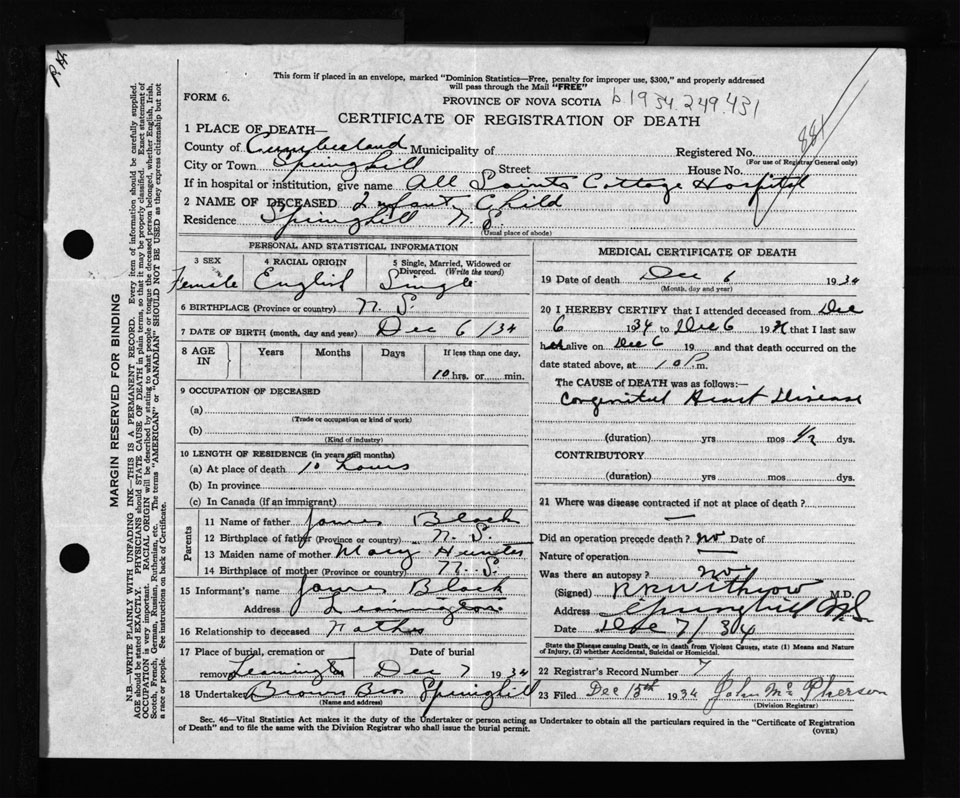 R H
This form if placed in an envelope, marked "Dominion Statistics—Free, penalty for improper use, $300," and properly addressed
will pass through the Mail "FREE"
FORM 6.
PROVINCE OF NOVA SCOTIA b 1934.249.431
CERTIFICATE OF REGISTRATION OF DEATH
881
1 PLACE OF DEATH—
County of Cumberland Municipality of Registered No.
(For use of Registrar General only)
City or Town Springhill Street House No.
If in hospital or institution, give name All Saints Cottage Hospital
2 NAME OF DECEASED Infant Child
Residence Springhill N.S.
(Usual place of abode)
PERSONAL AND STATISTICAL INFORMATION
3 SEX 4 RACIAL ORIGIN 5 Single, Married, Widowed or
Divorced. (Write the word)
Female English Single
6 BIRTHPLACE (Province or country) N. S.
7 DATE OF BIRTH (month, day and year) Dec 6/34
8 AGE IN Years Months Days If less than one day,
10 hrs. or min.
9 OCCUPATION OF DECEASED
(a)
(Trade or occupation or kind of work)
(b)
(Kind of industry)
10 LENGTH OF RESIDENCE (in years and months)
(a) At place of death 10 hours
(b) In province
(c) In Canada (if an immigrant)
Parents
11 Name of father James Black
12 Birthplace of father (Province or country) N. S.
13 Maiden name of mother Mary Hunter
14 Birthplace of mother (Province or country) N. S.
15 Informant's name James Black
Address Leamington
16 Relationship to deceased Father
17 Place of burial, cremation or Date of burial
removal Leamington Dec 7 1934
18 Undertaker Brown Bro Springhill
(Name and address)
MEDICAL CERTIFICATE OF DEATH
19 Date of death Dec 6 1934
(Month, day and year)
20 I HEREBY CERTIFY that I attended deceased from Dec
6 1934 to Dec 6 1934 that I last saw
her alive on Dec 6 19 and that death occurred on the
date stated above, at 10 P m.
The CAUSE OF DEATH was as follows:—
Congenital Heart Disease
(duration) yrs mos 1/2 dys.
CONTRIBUTORY
(duration) yrs mos dys.
21 Where was disease contracted if not at place of death?
—
Did an operation precede death? no Date of
Nature of operation
Was there an autopsy? no
(Signed) Withrow M.D.
Address Springhill N.S.
Date Dec 7/34
State the Disease causing Death, or in death from Violent Causes, state (1) Means and Nature
of Injury, (2) whether Accidental, Suicidal or Homicidal.
22 Registrar's Record Number 7
23 Filed Dec 15th 1934 John McPherson
(Division Registrar)
Sec. 46—Vital Statistics Act makes it the duty of the Undertaker or person acting as Undertaker to obtain all the particulars required in the "Certificate of Registration
of Death" and to file the same with the Division Registrar who shall issue the burial permit.
(OVER)
MARGIN RESERVED FOR BINDING
N.B.—WRITE PLAINLY WITH UNFADING INK—THIS IS A PERMANENT RECORD. Every item of information should be carefully supplied.
AGE should be stated EXACTLY. PHYSICIANS should STATE CAUSE OF DEATH in plain terms, so that it may be properly classified. Exact statement of
OCCUPATION is very important. RACIAL ORIGIN will be described by stating to what people or tongue the deceased person belonged, whether English, Irish,
Scotch, French, German, Russian, Ruthenian, etc. The terms "AMERICAN" or "CANADIAN" SHOULD NOT BE USED as they express citizenship but not
a race or people. See instructions on back of Certificate.